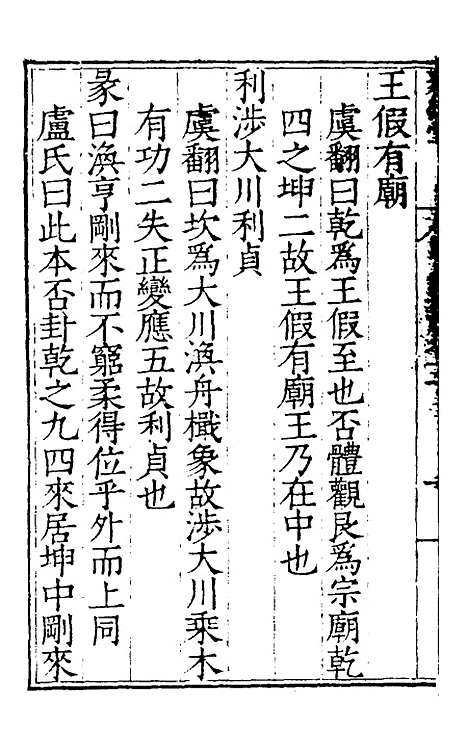 王假有廟
虞翻曰乾爲王假至也否體觀艮爲宗廟乾
四之坤二故王假有廟王乃在中也
利涉大川利貞
虞翻曰坎爲大川渙舟檝象故涉大川乗木
有功二失正變應五故利貞也
彖曰渙亨剛來而不窮柔得位乎外而上同
盧氏曰此本否卦乾之九四來居坤中剛來